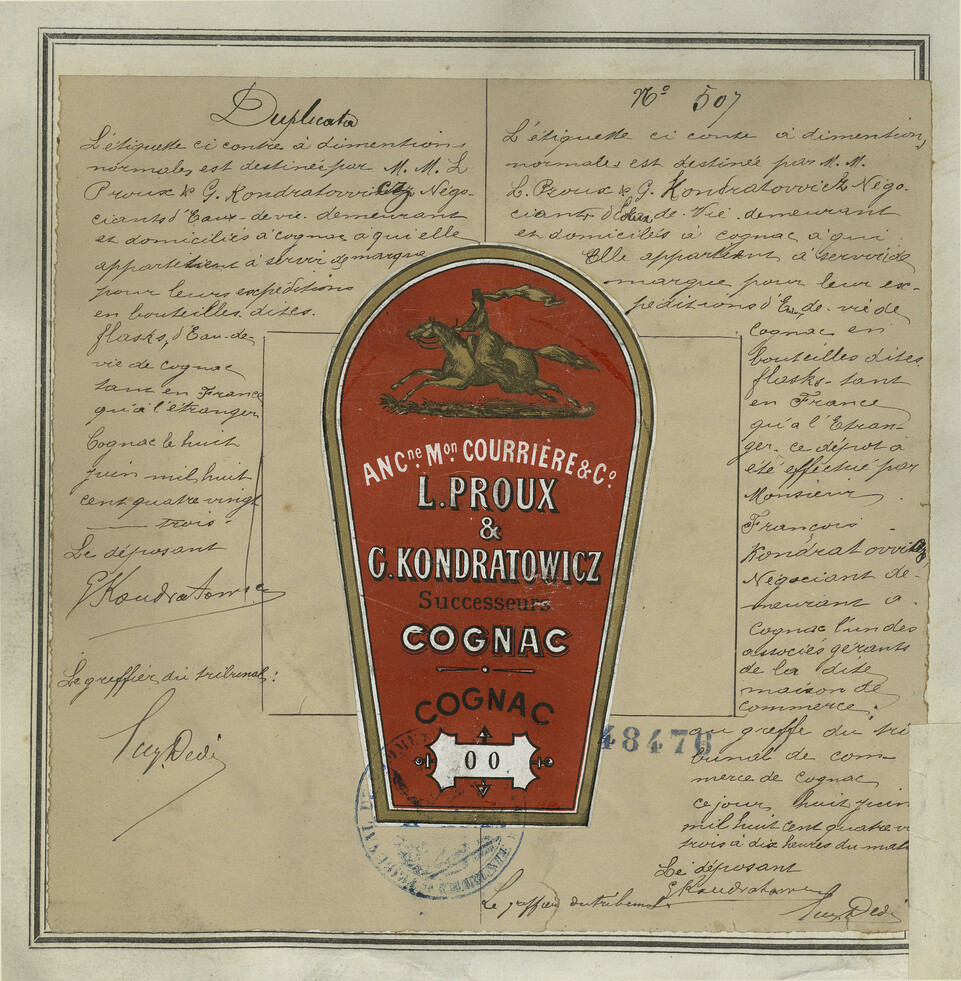 Duplicata
L'étiquette ci contre à dimentions
normales est destinée par M. M. L
Proux & G. Kondratovvicz Négo-
ciants d'Eaux-de-vie demeurant
et domiciliés à cognac à qui elle
appartient à servir de marque
pour leurs expéditions
en bouteilles, dites.
flasks, d'Eau-de-
vie de cognac
tant en France
qu'à l'étranger
Cognac le huit
juin mil huit
cent quatre vingt
trois.
Le déposant
G Kondratowicz
Le greffier du tribunal:
No 507
L'étiquette ci contre à dimentions
normales est destinée par M. M.
L. Proux & G. Kondratovvicz Négo-
ciants d'Eaux de. Vie. demeurant
et domiciliés à cognac à qui
Elle appartient à servir de
marque pour leur ex-
péditions d'Eau de-vie de
Cognac en
bouteilles dites
flasks- tant
en France
qu'à l'Etran-
ger. ce dépot à
été effectué par
Monsieur
François
Kondratovvicz
Négociant de-
meurant à
Cognac l'un des
associés gérants
de la dite
maison de
commerce.
au greffe du tri
bunal de com-
merce de cognac
ce jour, huit juin
mil huit cent quatre v
trois à dix heures du mat
Le déposant
G Kondratowicz
Le greffier du tribunal
ANCne. Mon COURRIÈRE & Co.
L. PROUX
&
G. KONDRATOWICZ
Successeurs
COGNAC
COGNAC
00
48476